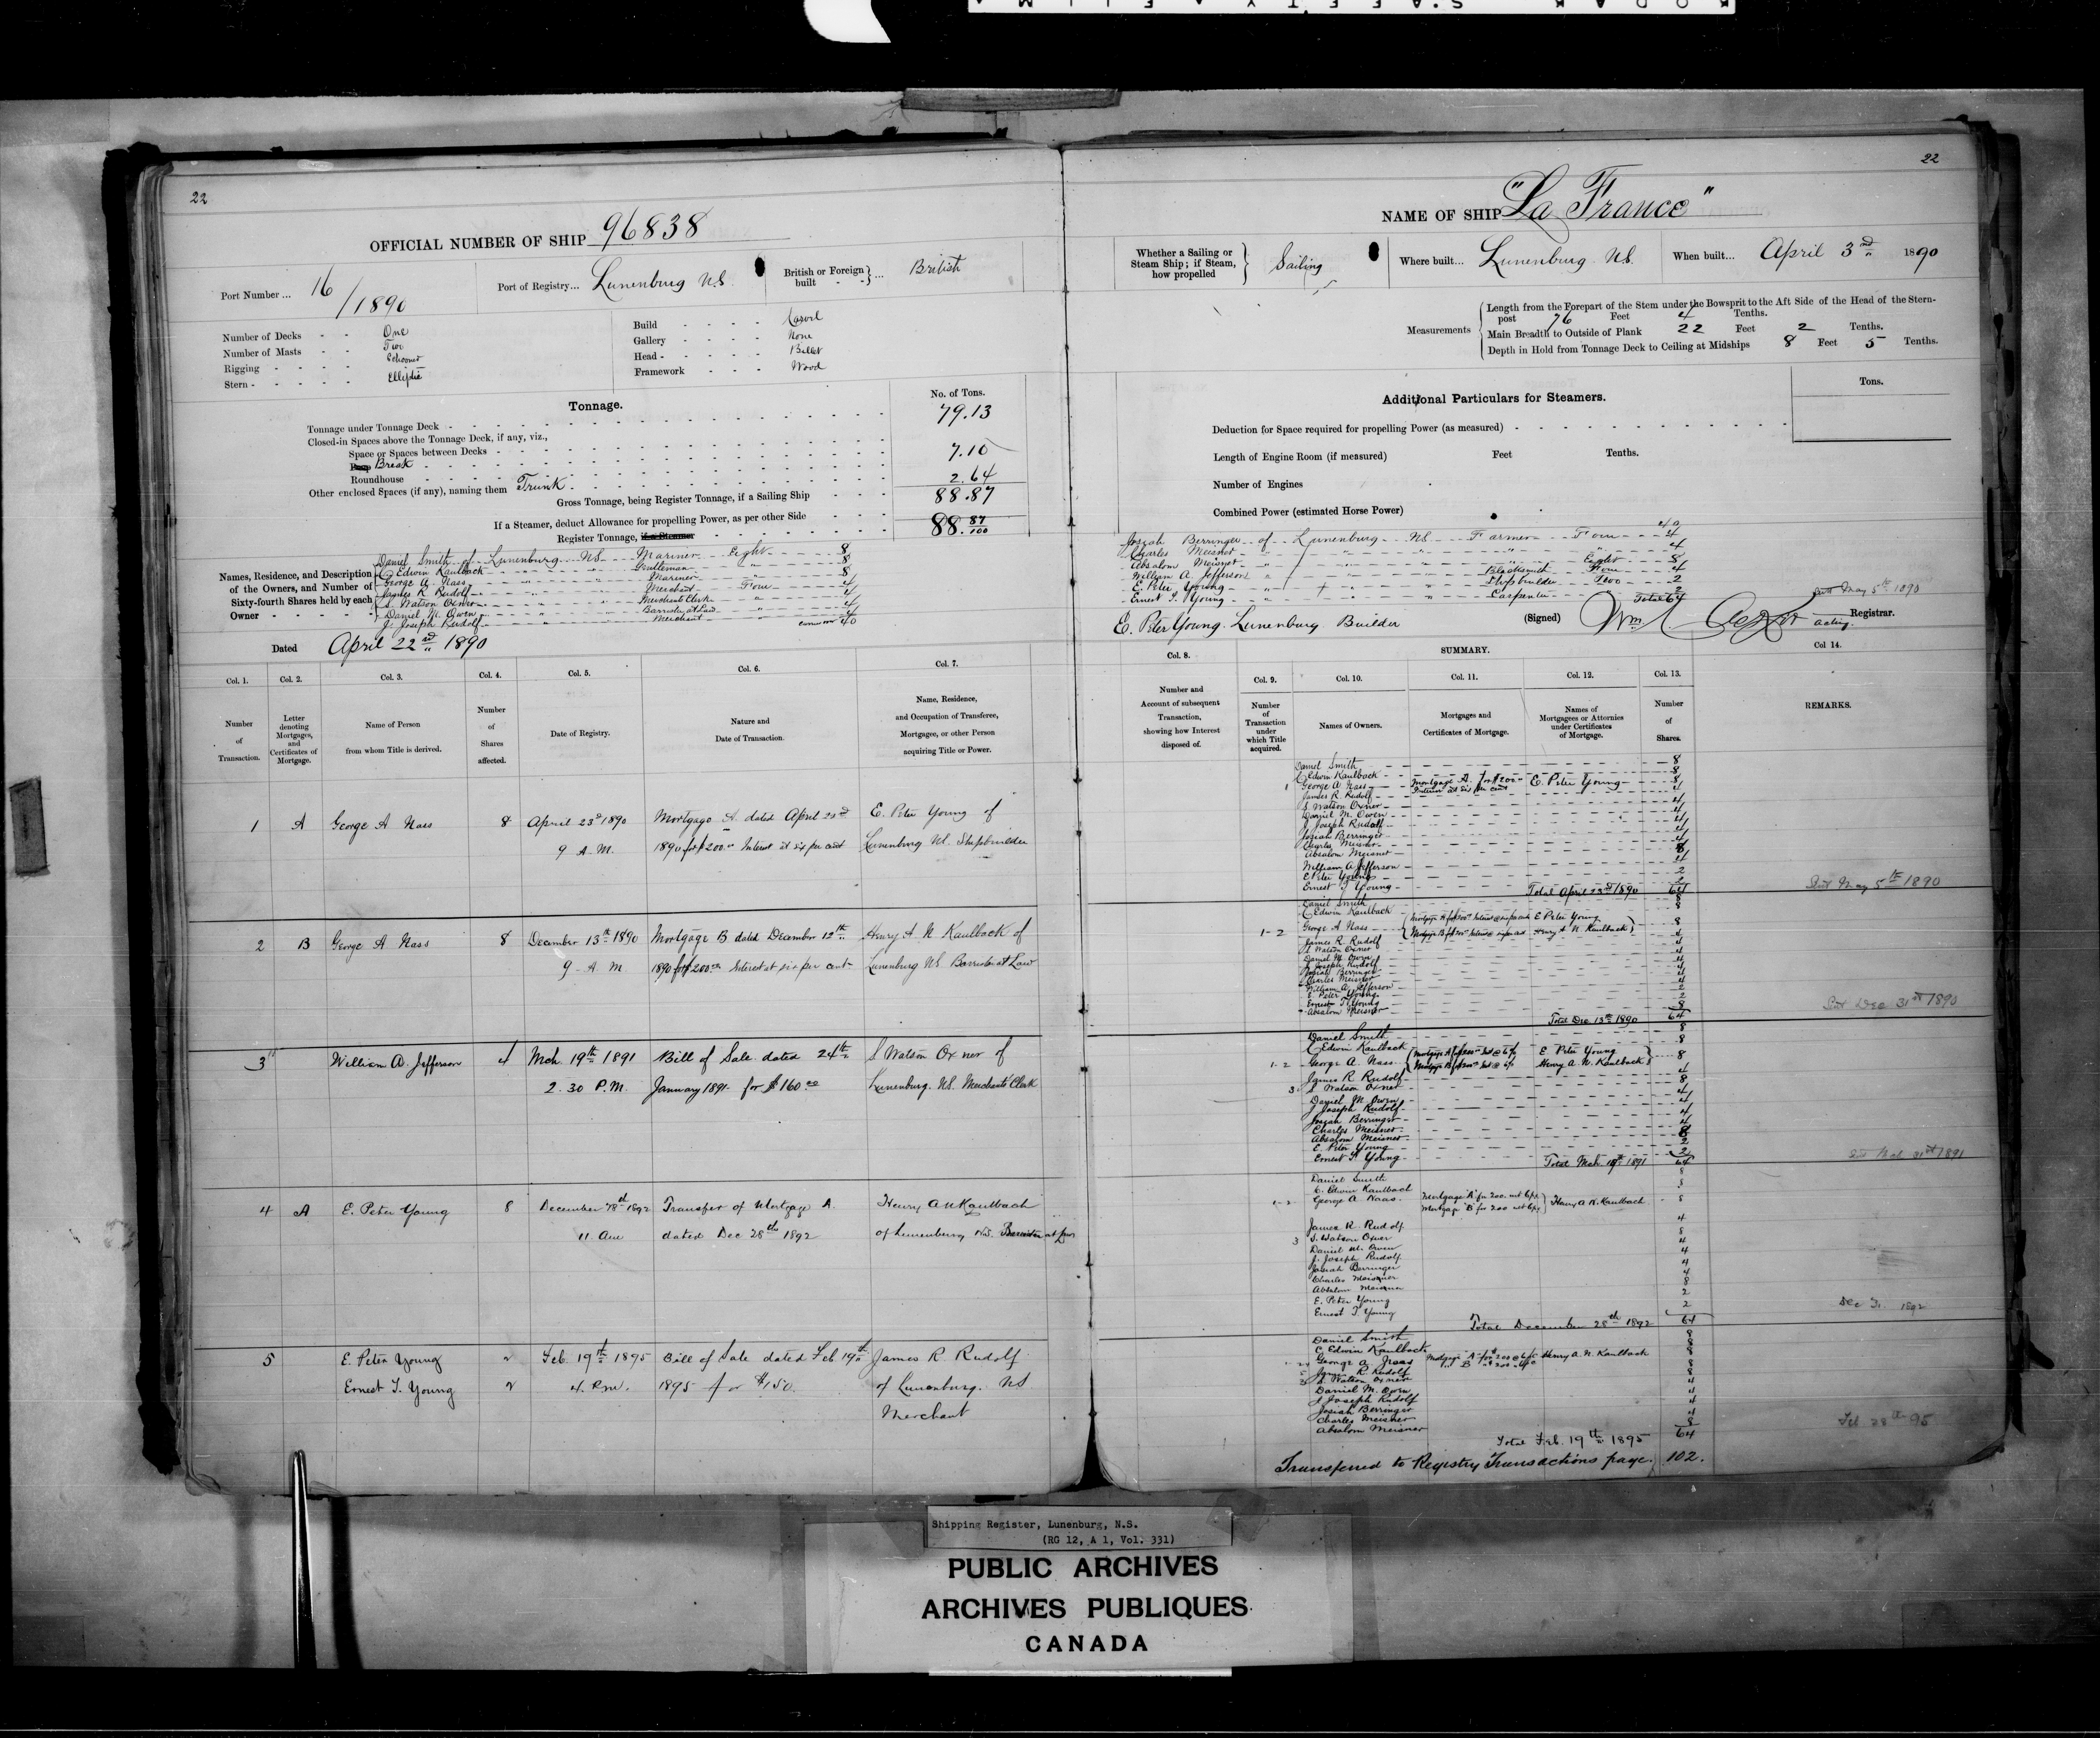 22
OFFICIAL NUMBER OF SHIP 96838
Port Number ... 16/1890
Port of Registry... Lunenburg N.S.
British or Foreign built ... British
Number of Decks - - One
Number of Masts - - Two
Rigging - - - - Schooner
Stern - - - - - Elliptic
Build - - - - Carvel
Gallery - - - - None
Head - - - - - Billet
Framework - - - Wood
Tonnage.
No. of Tons.
Tonnage under Tonnage Deck - 79.13
Closed-in Spaces above the Tonnage Deck, if any, viz.,
Space or Spaces between Decks -
Poop Break - 7.10
Roundhouse -
Other enclosed Spaces (if any), naming them Trunk - 2.64
Gross Tonnage, being Register Tonnage, if a Sailing Ship - - - 88.87
If a Steamer, deduct Allowance for propelling Power, as per other Side - - -
Register Tonnage, if a Steamer - 88.87/100
Names, Residence, and Description of the Owners, and Number of Sixty-fourth Shares held by each Owner
Daniel Smith of Lunenburg NS Mariner Eight 8
C Edwin Kaulback " " Gentleman " 8
George A. Nass " " Mariner " 8
James R Rudolf " " Merchant Four 4
S. Watson Oxner " " Merchant Clerk " 4
Daniel M. Owen " " Barrister at Law " 4
J. Joseph Rudolf " " Merchant " 4
40
Dated April 22nd 1890
Col. 1. Col. 2. Col. 3. Col. 4. Col. 5. Col. 6. Col. 7.
Number of Transaction.
Letter denoting Mortgages, and Certificates of Mortgage.
Name of Person from whom Title is derived.
Number of Shares affected.
Date of Registry.
Nature and Date of Transaction.
Name, Residence, and Occupation of Transferee, Mortgagee, or other Person acquiring Title or Power.
1 A George A Nass 8 April 23d 1890 Mortgage A dated April 23rd E. Peter Young of
9 A.M. 1890 for $200.00 Interest at six per cent Lunenburg NS. Shipbuilder
2 B George A Nass 8 December 13th 1890 Mortgage B dated December 12th Henry A N Kaulback of
9 A M 1890 for $200.00 Interest at six per cent Lunenburg NS. Barrister at Law
3 William A. Jefferson 4 Mch 19th 1891 Bill of Sale dated 24th S Watson Oxner of
2.30 P.M. January 1891 for $160.00 Lunenburg. NS. Merchants' Clerk
4 A E. Peter Young 8 December 28th 1892 Transfer of Mortgage A. Henry A N Kaulbach
11. am dated Dec 28th 1892 of Lunenburg N.S. Barrister at Law
5 E. Peter Young 2 Feb. 19th 1895 Bill of Sale dated Feb 19th James R. Rudolf
Ernest T. Young 2 4. P.m. 1895 for $150. of Lunenburg. NS
Merchant
22
NAME OF SHIP "La France"
Whether a Sailing or Steam Ship; if Steam, how propelled Sailing
Where built... Lunenburg N.S.
When built... April 3rd 1890
Measurements
Length from the Forepart of the Stem under the Bowsprit to the Aft Side of the Head of the Stern-post 76 Feet 4 Tenths.
Main Breadth to Outside of Plank 22 Feet 2 Tenths.
Depth in Hold from Tonnage Deck to Ceiling at Midships 8 Feet 5 Tenths.
Additional Particulars for Steamers.
Tons.
Deduction for Space required for propelling Power (as measured) -
Length of Engine Room (if measured) Feet Tenths.
Number of Engines
Combined Power (estimated Horse Power)
40
Josiah Berringer of Lunenburg NS Farmer Four 4
Charles Meisner " " " " 4
Absalom Meisner " " " Eight 8
William A. Jefferson " " Blacksmith Four 4
E. Peter Young " " Shipbuilder Two 2
Ernest T. Young " " Carpenter " 2
Total 64
Sent May 5th 1890
E. Peter Young. Lunenburg Builder
(Signed) Wm
acting Registrar.
SUMMARY.
Col. 8. Col. 9. Col. 10. Col. 11. Col. 12. Col. 13. Col 14.
Number and Account of subsequent Transaction, showing how Interest disposed of.
Number of Transaction under which Title acquired.
Names of Owners.
Mortgages and Certificates of Mortgage.
Names of Mortgagees or Attornies under Certificates of Mortgage.
Number of Shares.
REMARKS.
Daniel Smith 8
C Edwin Kaulback 8
1 George A Nass Mortgage A. for $200.00 Interest at six per cent E. Peter Young 8
James R. Rudolf 4
S. Watson Oxner 4
Daniel M. Owen 4
J Joseph Rudolf 4
Josiah Berringer 4
Charles Meisner 4
Absalom Meisner 8
William A Jefferson 4
E Peter Young 2
Ernest T Young 2
Total April 23rd 1890 64
Sent May 5th 1890
Daniel Smith 8
C Edwin Kaulback 8
1-2 George A Nass E Peter Young Henry A N Kaulback 8
James R Rudolf 4
S Watson Oxner 4
Daniel M. Owen 4
J Joseph Rudolf 4
Josiah Berringer 4
Charles Meisner 4
William A. Jefferson 4
E. Peter Young 2
Ernest T Young 2
Absalom Meisner 8
Total Dec. 13th 1890 64
Sent Dec 31st 1890
Daniel Smith 8
C Edwin Kaulback 8
1-2 George A. Nass Mortgage A for $200.00 Int @ 6% E. Peter Young 8
Mortgage B for $200.00 Int @ 6% Henry A. N. Kaulback
James R Rudolf 4
3 S Watson Oxner 8
Daniel M. Owen 4
J Joseph Rudolf 4
Josiah Berringer 4
Charles Meisner 4
Absalom Meisner 8
E. Peter Young 2
Ernest T. Young 2
Total Mch 19th 1891 64
Sent Mch 31st 1891
Daniel Smith 8
C. Edwin Kaulbach 8
1-2 George A Naas. Mortgage "A" for 200. int 6% Henry A. N. Kaulbach 8
Mortgage "B" for 200 int 6%
James R. Rudolf. 4
3 S. Watson Oxner 8
Daniel M. Owen 4
J. Joseph Rudolf 4
Josiah Berringer 4
Charles Meisner 4
Absalom Meisner 8
E. Peter Young 2
Ernest T Young 2
Total December 28th 1892 64
Dec 31 1892
Daniel Smith 8
C Edwin Kaulback 8
George A. Naas Mortgage "A" for $200 @ 6% Henry A. N. Kaulback 8
" B " $200 " 6%
5 James R. Rudolf 8
3 S. Watson Oxner 8
Daniel M. Owen 4
J Joseph Rudolf 4
Josiah Berringer 4
Charles Meisner 4
Absalom Meisner 8
Total Feb. 19th 1895 64
Feb 28th 95
Transferred to Registry Transactions page. 102.
Shipping Register, Lunenburg, N.S.
(RG 12, A 1, Vol. 331)
PUBLIC ARCHIVES
ARCHIVES PUBLIQUES
CANADA